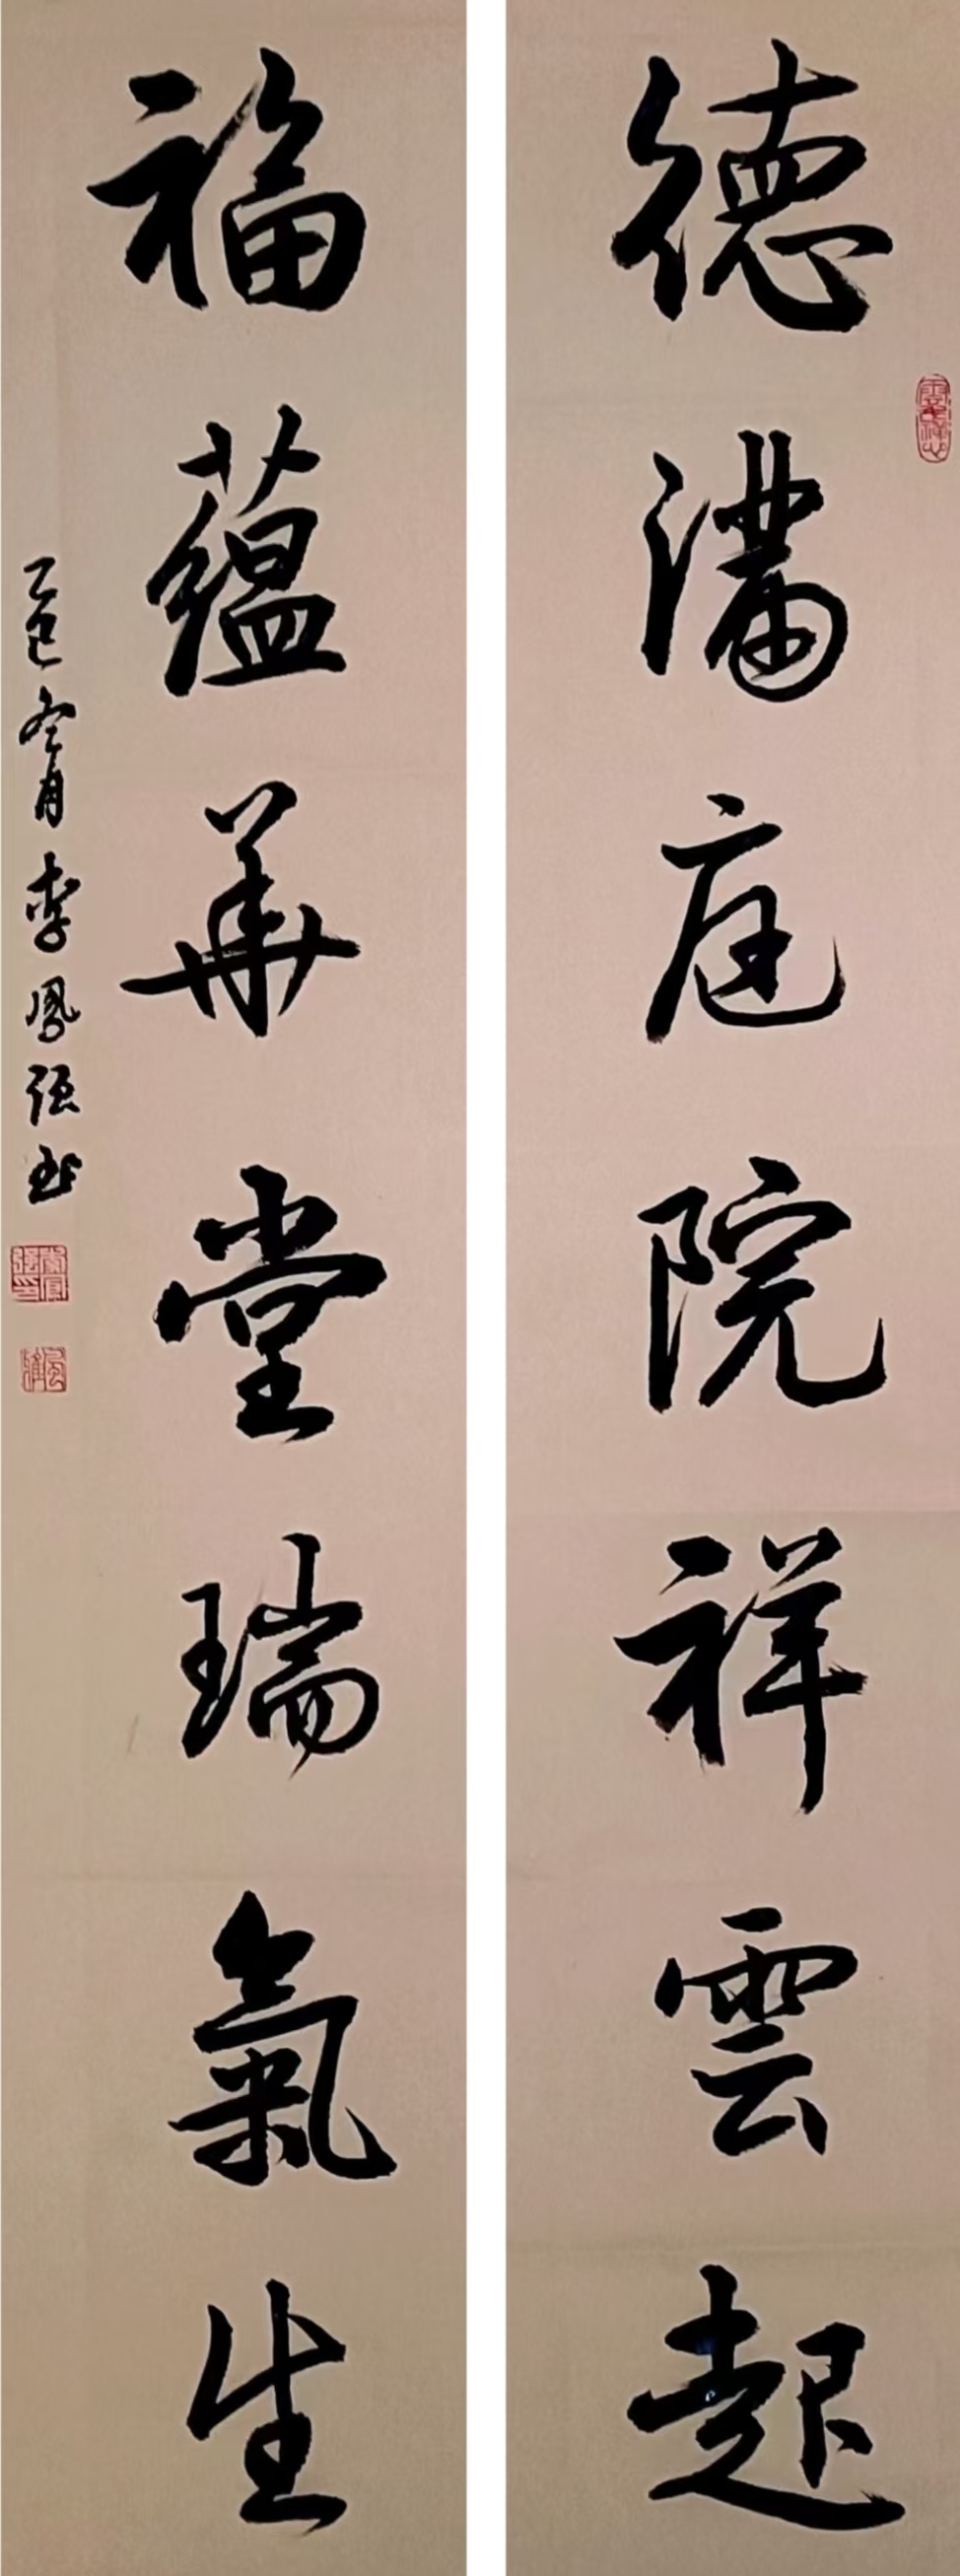 德滿庭院祥雲起
福蘊華堂瑞氣生
乙巳冬月李鳳强书